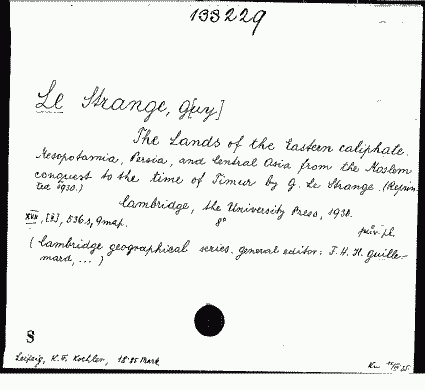 133229
Le Strange, g[uy]
The Lands of the Eastern caliphate.
Mesopotamia, Persia, and Central Asia from the Moslem
conquest to the time of Timur by G. Le Strange. (Reprin-
ted 1930.)
Cambridge, the University Press, 1930.
XVII, [II], 536 s, 9 map. 8°
pův. pl.
(Cambridge geographical series. general editor: F. H. H. guille-
mard, ... )
S
Leipzig, K. F. Koehler, 18·85 Mark